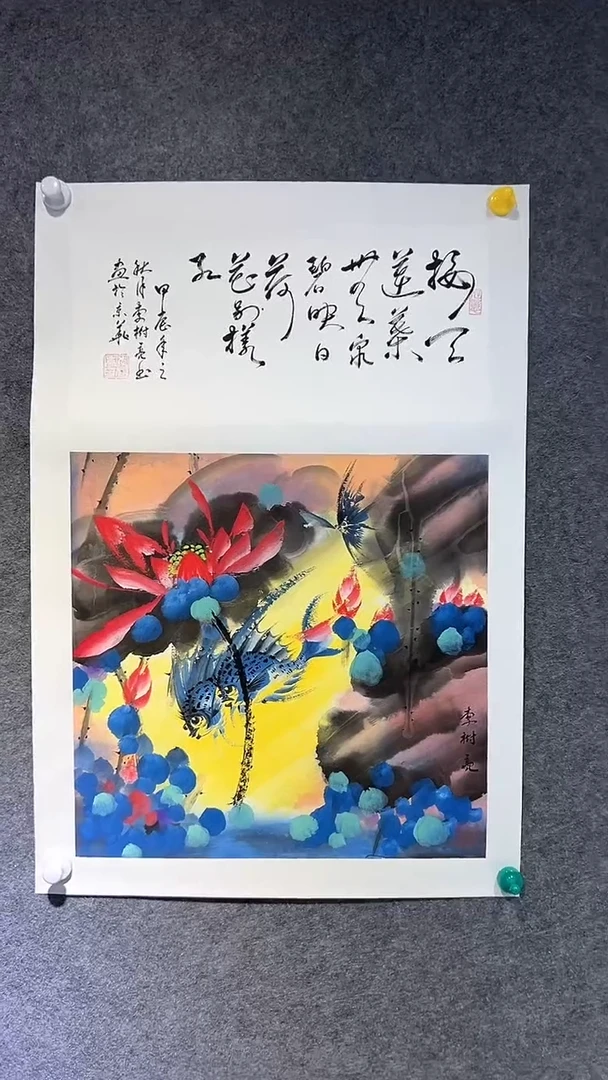 接天
蓮葉
無窮
碧映日
荷
花别樣
紅
甲辰年之
秋月李樹亮書
畫於京華
李樹亮